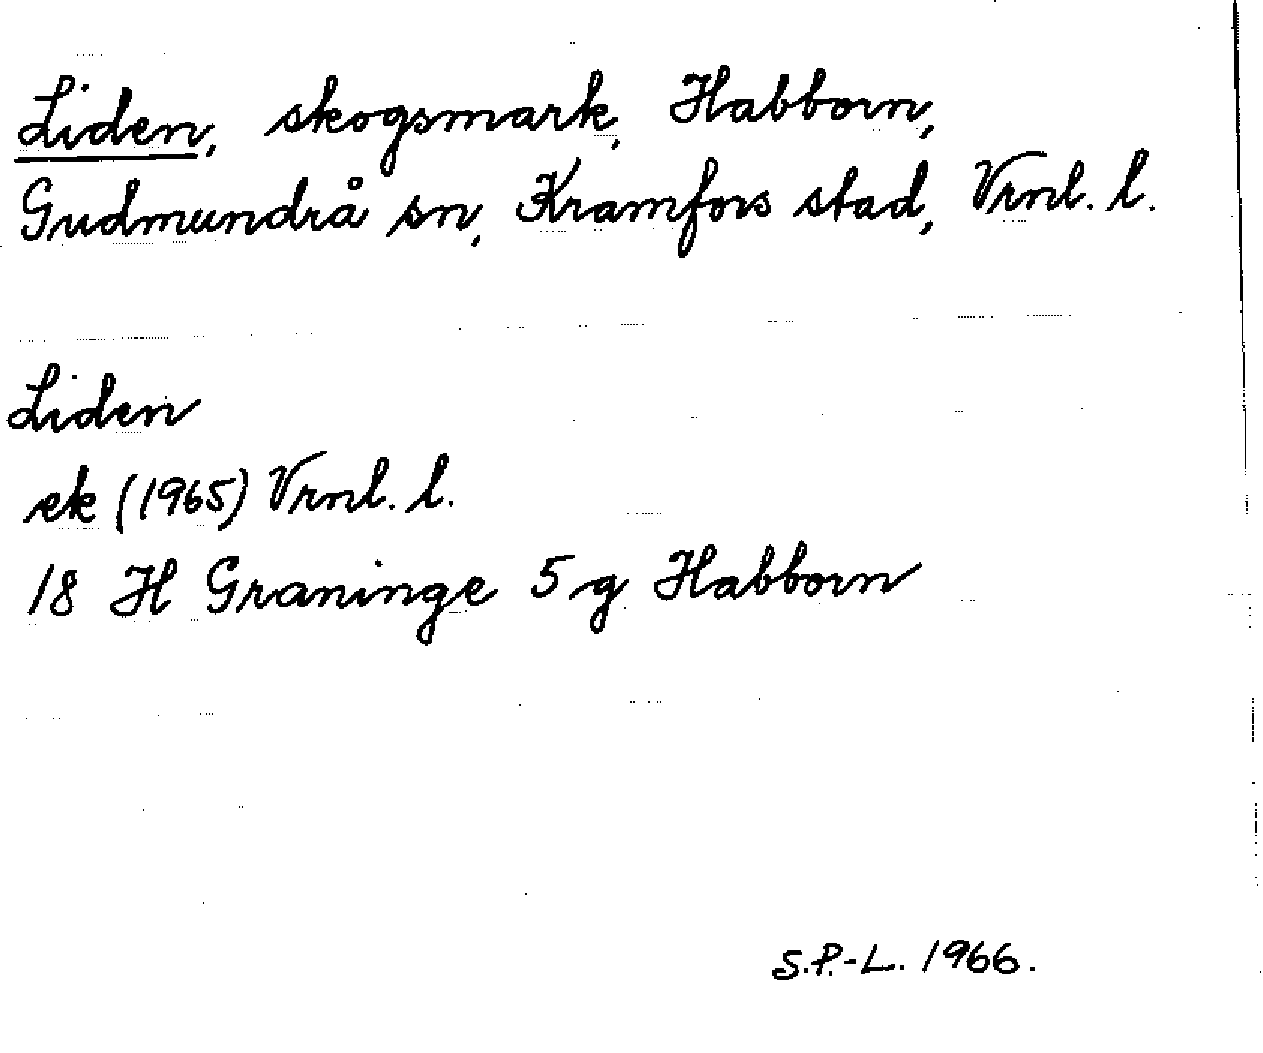 Liden, skogsmark, Habborn,
Gudmundrå sn, Kramfors stad, Vrnl. l.
Liden
ek (1965) Vrnl. l.
18 H Graninge 5 g Habborn
S.P.-L. 1966.